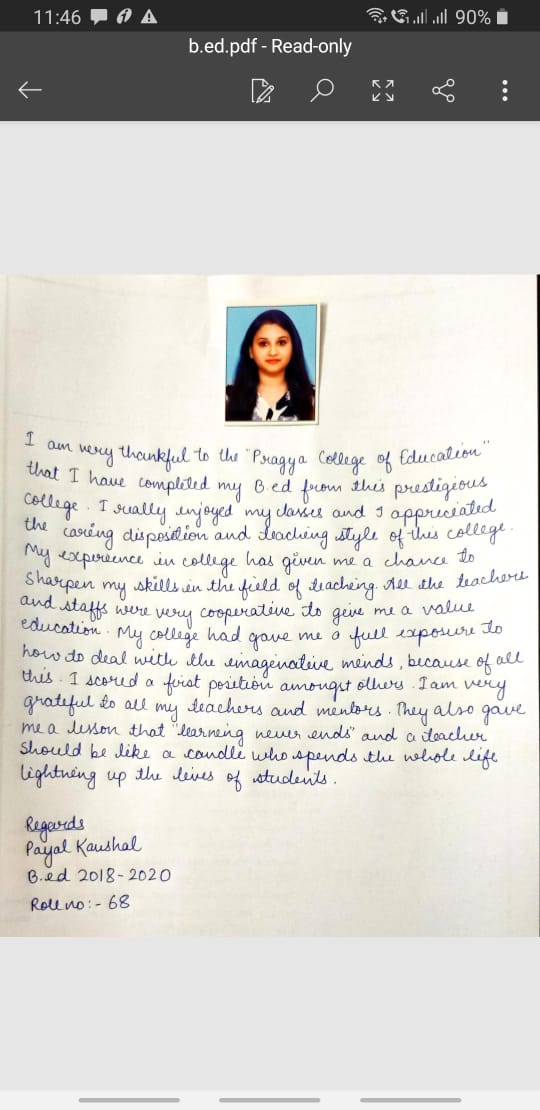 11:46
90%
b.ed.pdf - Read-only
I am very thankful to the "Pragya College of Education"
that I have completed my B.ed from this prestigious
college. I really enjoyed my classes and I appreciated
the caring disposition and teaching style of this college.
My experience in college has given me a chance to
sharpen my skills in the field of teaching. All the teachers
and staffs were very cooperative to give me a value
education. My college had gave me a full exposure to
how to deal with the imaginative minds, because of all
this. I scored a first position amongst others. I am very
grateful to all my teachers and mentors. They also gave
me a lesson that "learning never ends" and a teacher
should be like a candle who spends the whole life
lightning up the lives of students.
Regards
Payal Kaushal
B.ed 2018-2020
Roll no:- 68